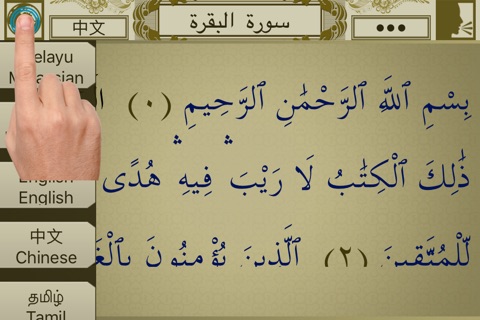 中文
سورة البقرة
•••
Melayu
بِسْمِ ٱللَّهِ ٱلرَّحْمَٰنِ ٱلرَّحِيمِ (٠)
ذَٰلِكَ ٱلْكِتَٰبُ لَا رَيْبَ ۛ فِيهِ ۛ هُدًى
لِّلْمُتَّقِينَ (٢) ٱلَّذِينَ يُؤْمِنُونَ
English
English
中文
Chinese
தமிழ்
Tamil